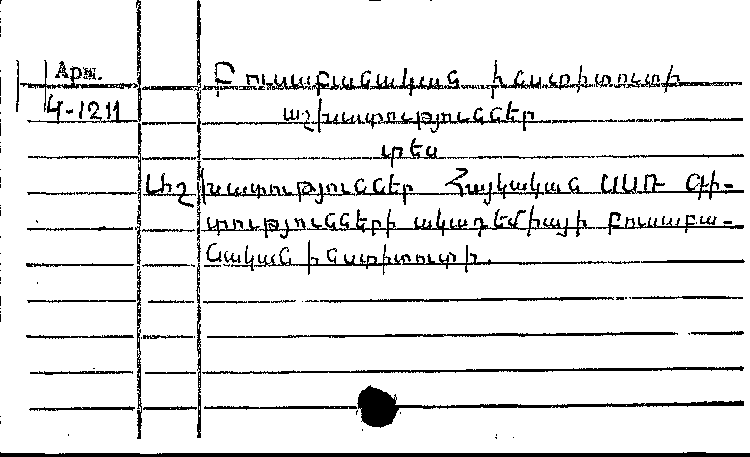 Արխ.
Կ-1211
Բուսաբանական ինստիտուտի
աշխատություններ
տես
Աշխատություններ Հայկական ՍՍՌ Գի-
տությունների ակադեմիայի Բուսաբա-
նական ինստիտուտի.